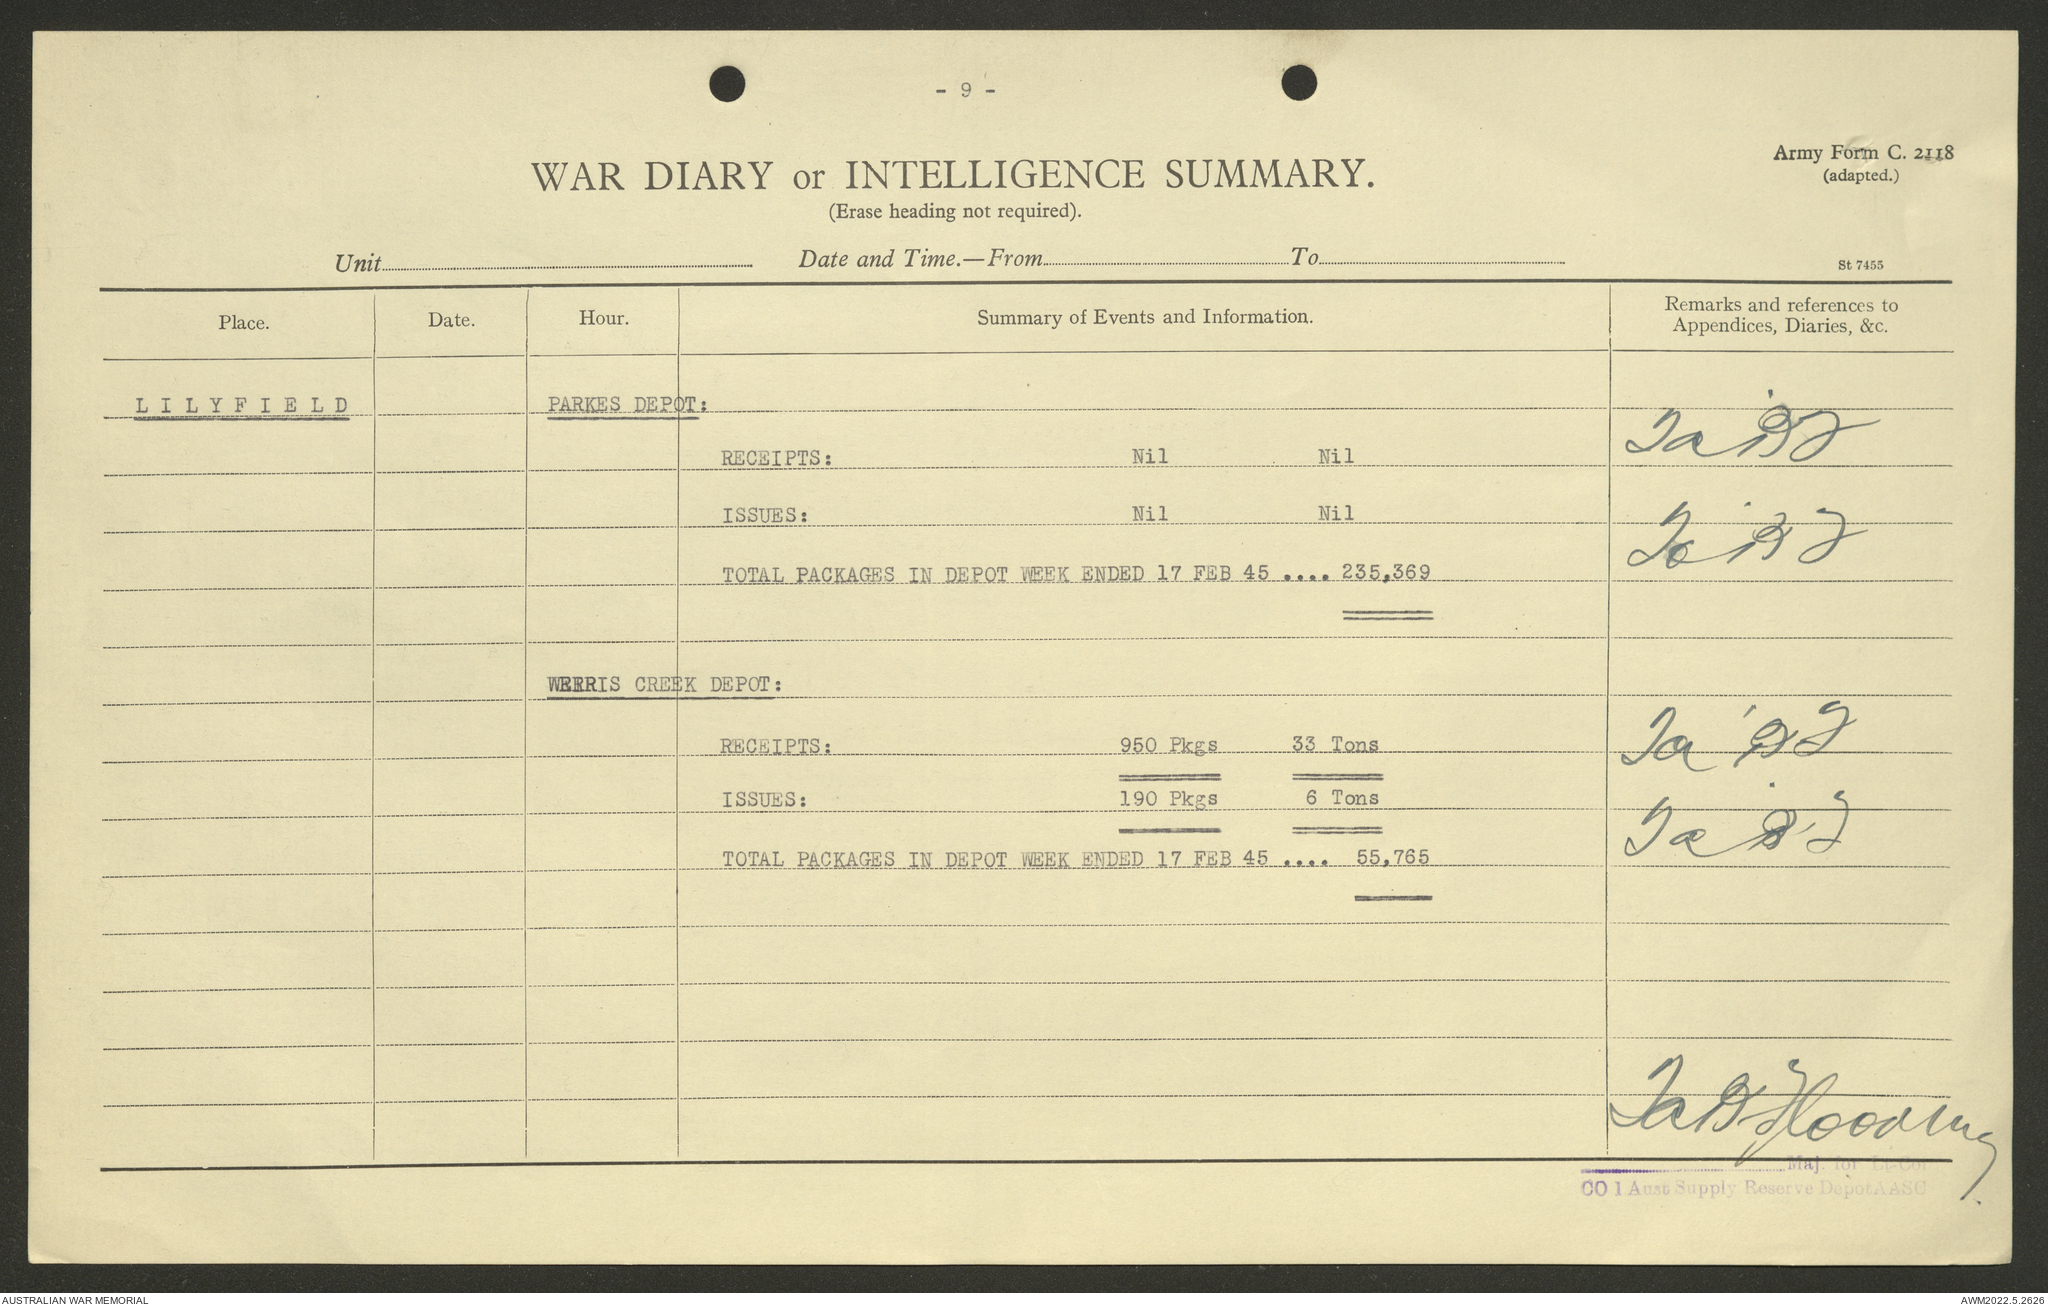 - 9 -
Army Form C. 2118
(adapted.)
WAR DIARY or INTELLIGENCE SUMMARY.
(Erase heading not required).
Unit Date and Time.—From To
St 7455
Place. Date. Hour. Summary of Events and Information. Remarks and references to
Appendices, Diaries, &c.
LILYFIELD PARKES DEPOT:
RECEIPTS: Nil Nil
ISSUES: Nil Nil
TOTAL PACKAGES IN DEPOT WEEK ENDED 17 FEB 45 .... 235,369
WERRIS CREEK DEPOT:
RECEIPTS: 950 Pkgs 33 Tons
ISSUES: 190 Pkgs 6 Tons
TOTAL PACKAGES IN DEPOT WEEK ENDED 17 FEB 45 .... 55,765
Maj. for Lt-Col
CO 1 Aust Supply Reserve Depot AASC
AUSTRALIAN WAR MEMORIAL
AWM2022.5.2626